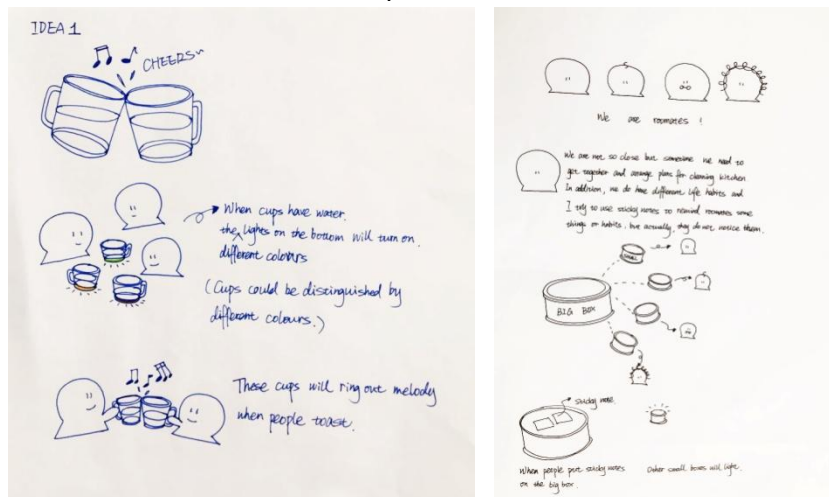 IDEA 1
CHEERS~
When cups have water.
the lights on the bottom will turn on.
different colours
(Cups could be distinguished by
different colours.)
These cups will ring out melody
when people toast.
We are roomates !
We are not so close but sometime we need to
get together and arrange plans for cleaning kitchen
In addition, we do have different life habits and
I try to use sticky notes to remind roomates some
things or habits, but actually, they do not notice them.
BIG BOX
sticky note
When people put sticky notes
on the big box.
Other small boxes will light.